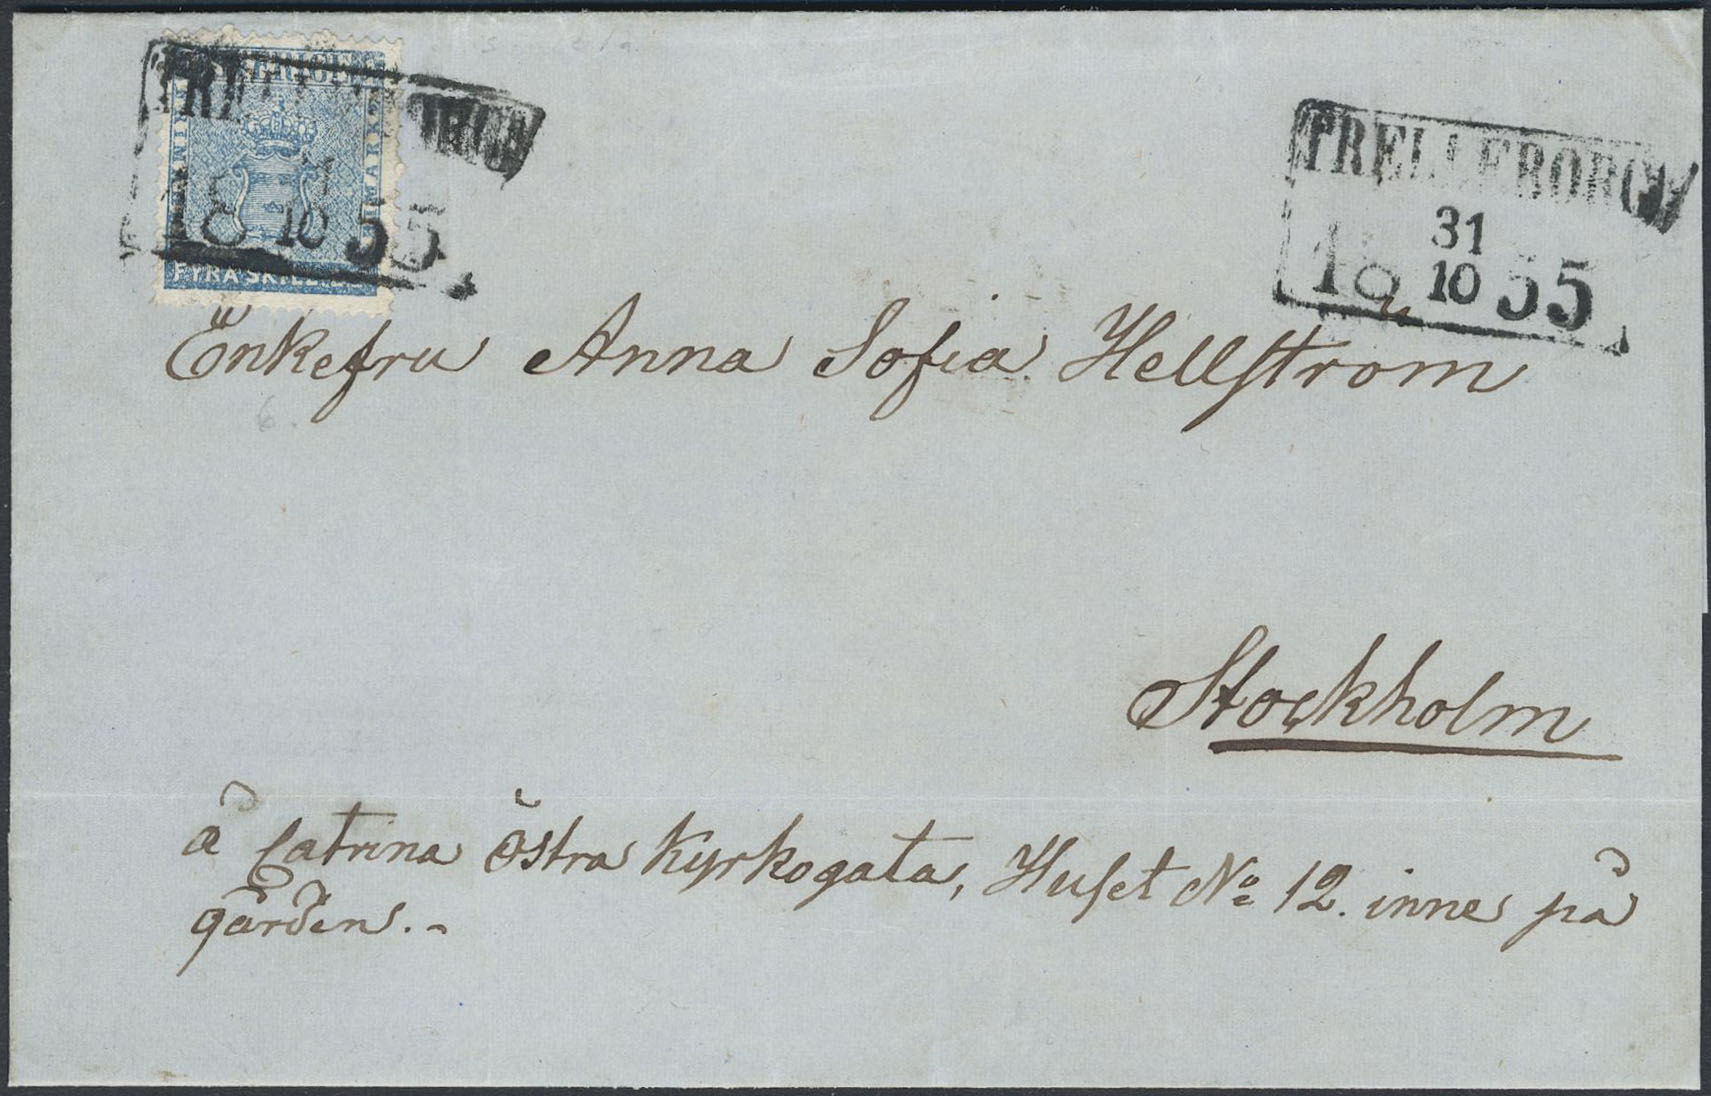 SVERIGE
FRIMÄRKE
FYRA SKILL. B
TRELLEBORG
31
18 10 55
TRELLEBORG
31
18 10 55
Enkefru Anna Sofia Hellström
Stockholm
å Catrina östra Kyrkogata, Huset No 12. inne på
gården.